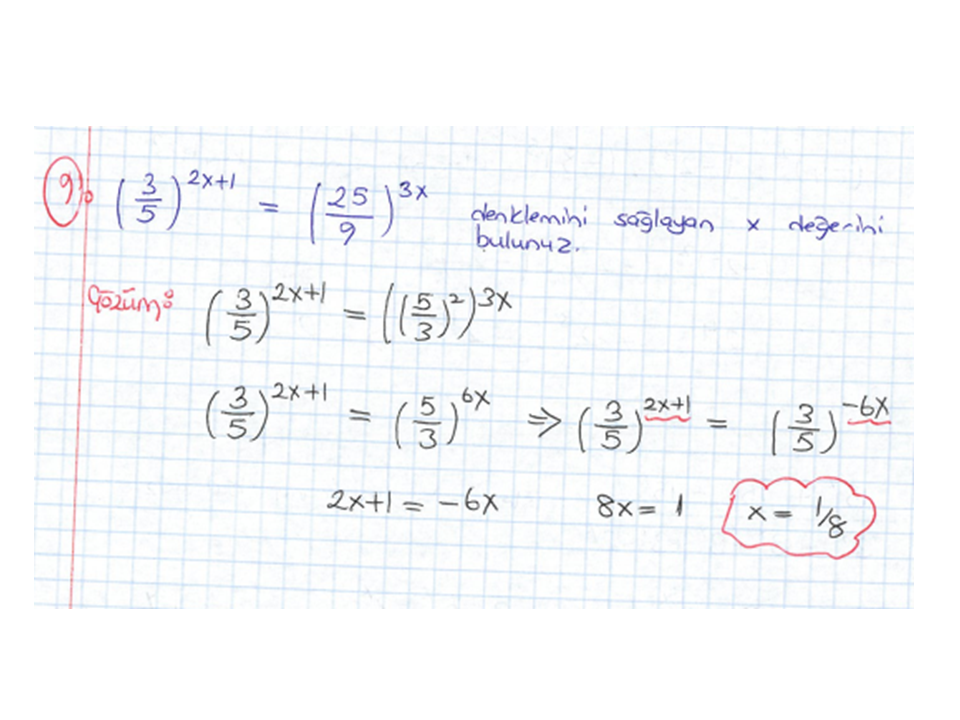 9) (3/5)^(2x+1) = (25/9)^(3x) denklemini sağlayan x değerini
bulunuz.
Çözüm: (3/5)^(2x+1) = ((5/3)^2)^(3x)
(3/5)^(2x+1) = (5/3)^(6x) ⇒ (3/5)^(2x+1) = (3/5)^(-6x)
2x+1 = -6x 8x = 1 x = 1/8